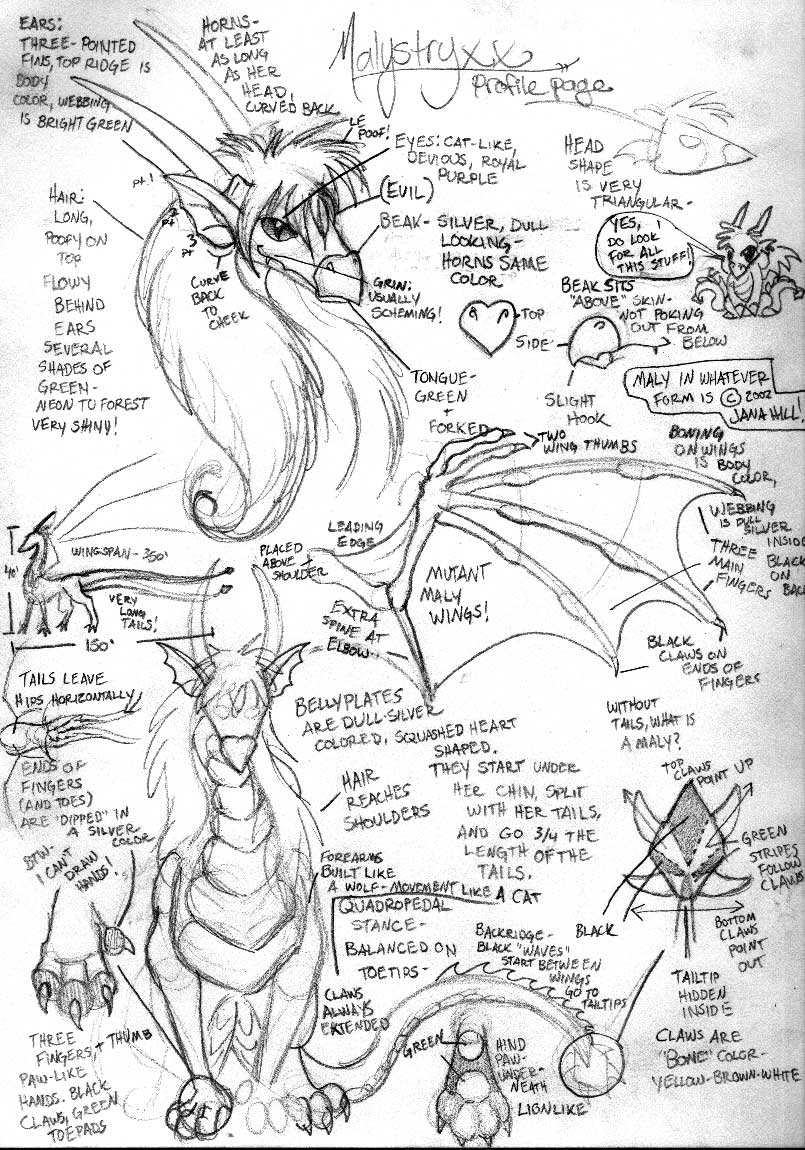 EARS:
THREE-POINTED
FINS, TOP RIDGE IS
BODY
COLOR, WEBBING
IS BRIGHT GREEN
HORNS-
AT LEAST
AS LONG
AS HER
HEAD,
CURVED BACK
Malystryxx
Profile page
LE
POOF!
EYES: CAT-LIKE,
DEVIOUS, ROYAL
PURPLE
(EVIL)
HEAD
SHAPE
IS VERY
TRIANGULAR-
pt. 1
2
pt
3
pt
HAIR:
LONG,
POOFY ON
TOP
FLOWY
BEHIND
EARS
SEVERAL
SHADES OF
GREEN-
NEON TO FOREST
VERY SHINY!
CURVE
BACK
TO
CHEEK
BEAK- SILVER, DULL
LOOKING-
HORNS SAME
COLOR
GRIN:
USUALLY
SCHEMING!
YES, I
DO LOOK
FOR ALL
THIS STUFF!
BEAK SITS
"ABOVE" SKIN-
NOT POKING
OUT FROM
BELOW
TOP
SIDE
SLIGHT
HOOK
MALY IN WHATEVER
FORM IS © 2002
JANA HILL!
TONGUE-
GREEN
+
FORKED
TWO
WING THUMBS
BONING
ON WINGS
IS BODY
COLOR,
WEBBING
IS DULL
SILVER
INSIDE
BLACK
ON
BACK
THREE
MAIN
FINGERS
LEADING
EDGE
PLACED
ABOVE
SHOULDER
MUTANT
MALY
WINGS!
EXTRA
SPINE AT
ELBOW
BLACK
CLAWS ON
ENDS OF
FINGERS
WINGSPAN-350'
40'
VERY
LONG
TAILS!
150'
TAILS LEAVE
HIPS HORIZONTALLY
BELLYPLATES
ARE DULL-SILVER
COLORED, SQUASHED HEART
SHAPED.
THEY START UNDER
HER CHIN, SPLIT
WITH HER TAILS,
AND GO 3/4 THE
LENGTH OF THE
TAILS.
WITHOUT
TAILS, WHAT IS
A MALY?
ENDS OF
FINGERS
(AND TOES)
ARE "DIPPED" IN
A SILVER
COLOR
BTW-
I CAN'T
DRAW
HANDS!
HAIR
REACHES
SHOULDERS
TOP
CLAWS
POINT UP
GREEN
STRIPES
FOLLOW
CLAWS
BLACK
BOTTOM
CLAWS
POINT
OUT
FOREARMS
BUILT LIKE
A WOLF-MOVEMENT LIKE A CAT
QUADROPEDAL
STANCE-
BALANCED ON
TOETIPS-
CLAWS
ALWAYS
EXTENDED
BACKRIDGE-
BLACK "WAVES"
START BETWEEN
WINGS
GO TO
TAILTIPS
TAILTIP
HIDDEN
INSIDE
CLAWS ARE
"BONE" COLOR-
YELLOW-BROWN-WHITE
THREE
FINGERS, + THUMB
PAW-LIKE
HANDS. BLACK
CLAWS, GREEN
TOEPADS
GREEN
HIND
PAW-
UNDER-
NEATH
LIONLIKE